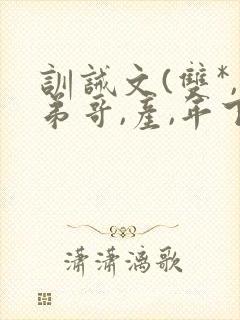 訓誡文(雙*,
弟哥,產,年下
瀟瀟漓歌